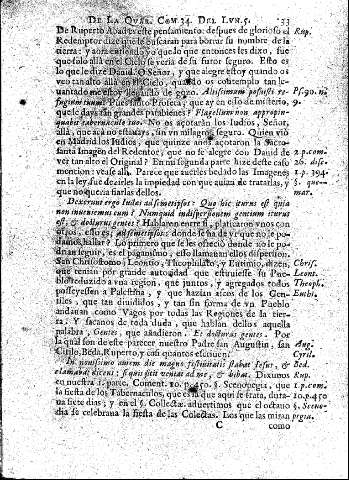 DE LA QVAR. COM. 34. DEL LVN. 5. 33
De Ruperto Abad es este pensamiento: despues de glorioso el Rup.
Redemptor dize que le buscaràn para borrar su nombre de la
tierra; y aora estiendo yo que lo que entonces les dixo, fue
que solo allà en el Cielo se veria de su furor seguro. Esto es
lo que le dize Dauid. O Señor, y que alegre estoy quando os
veo tan alto allà en el Cielo, quando os contemplo tan le-
uantado me estoy llenando de gozo. Altissimum posuisti re- Ps. 90. n.
fugium tuum. Pues santo Profeta, que ay en esso de misterio, 9.
que le days tan grandes parabienes? Flagellum non appropin-
quabit tabernaculo tuo. No os açotaràn los Iudios, Señor,
allà, que acà no estauays, sin vn milagro, seguro. Quien viò
en Madrid los Iudios, que quinze años açotaron la Sacro-
santa Imagen del Redentor, que no se alegre con Dauid de 2. p. com.
ver tan alto el Original? En mi segunda parte hize deste caso 26. disc.
mencion: vease allà. Parece que auerles bedado las Imagenes 1. p. 394.
en la ley fue dezirles la impiedad con que auian de tratarlas, y §. que-
que no queria fiarlas dellos. mar.
Dixerunt ergo Iudæi ad semetipsos: Quo hic iturus est quia
non inueniemus eum? Numquid in dispersionem gentium iturus
est, & docturus gentes? Hablaron entre si, platicaron vnos con
otros, esso es, ad semetipsos: donde se ha de yr que no le po-
damos hallar? Lo primero que se les ofreciò donde no le po-
drian seguir, es el paganismo, esso llaman ellos dispersion.
San Chrisostomo, Leoncio, Theophilato, y Eutimio, dizen, Chris.
que tenian por grande autoridad que estuuiesse su Pue- Leont.
blo reduzido a vna region, que juntos, y agregados todos Theoph.
posseyessen a Palestina, y que hazian ascos de los Gen- Euthi.
tiles, que tan diuididos, y tan sin forma de vn Pueblo
andauan como Vagos por todas las Regiones de la tier-
ra. Y sacanos de toda duda, que hablan dellos aquella
palabra, Gentes, que añadieron. Et docturus gentes. Por
la qual son de este parecer nuestro Padre san Augustin, san Aug.
Cirilo, Beda, Ruperto, y casi quantos escriuen. Cyril.
In nouissimo autem die magno festiuitatis stabat Iesus, & Bed.
clamabat dicens: si quis sitit veniat ad me, & bibat. Diximos Rup.
en nuestra 1. parte, Coment. 10. p. 450. §. Scenopegia, que 1. p. com.
la fiesta de los Tabernaculos, que es la que aqui se trata, dura- 10. p. 450
ua siete dias; y en el §. Collectæ, aduertimos que el octauo §. Sceno-
dia se celebraua la fiesta de las Colectas. Los que las miran pegia.
C como